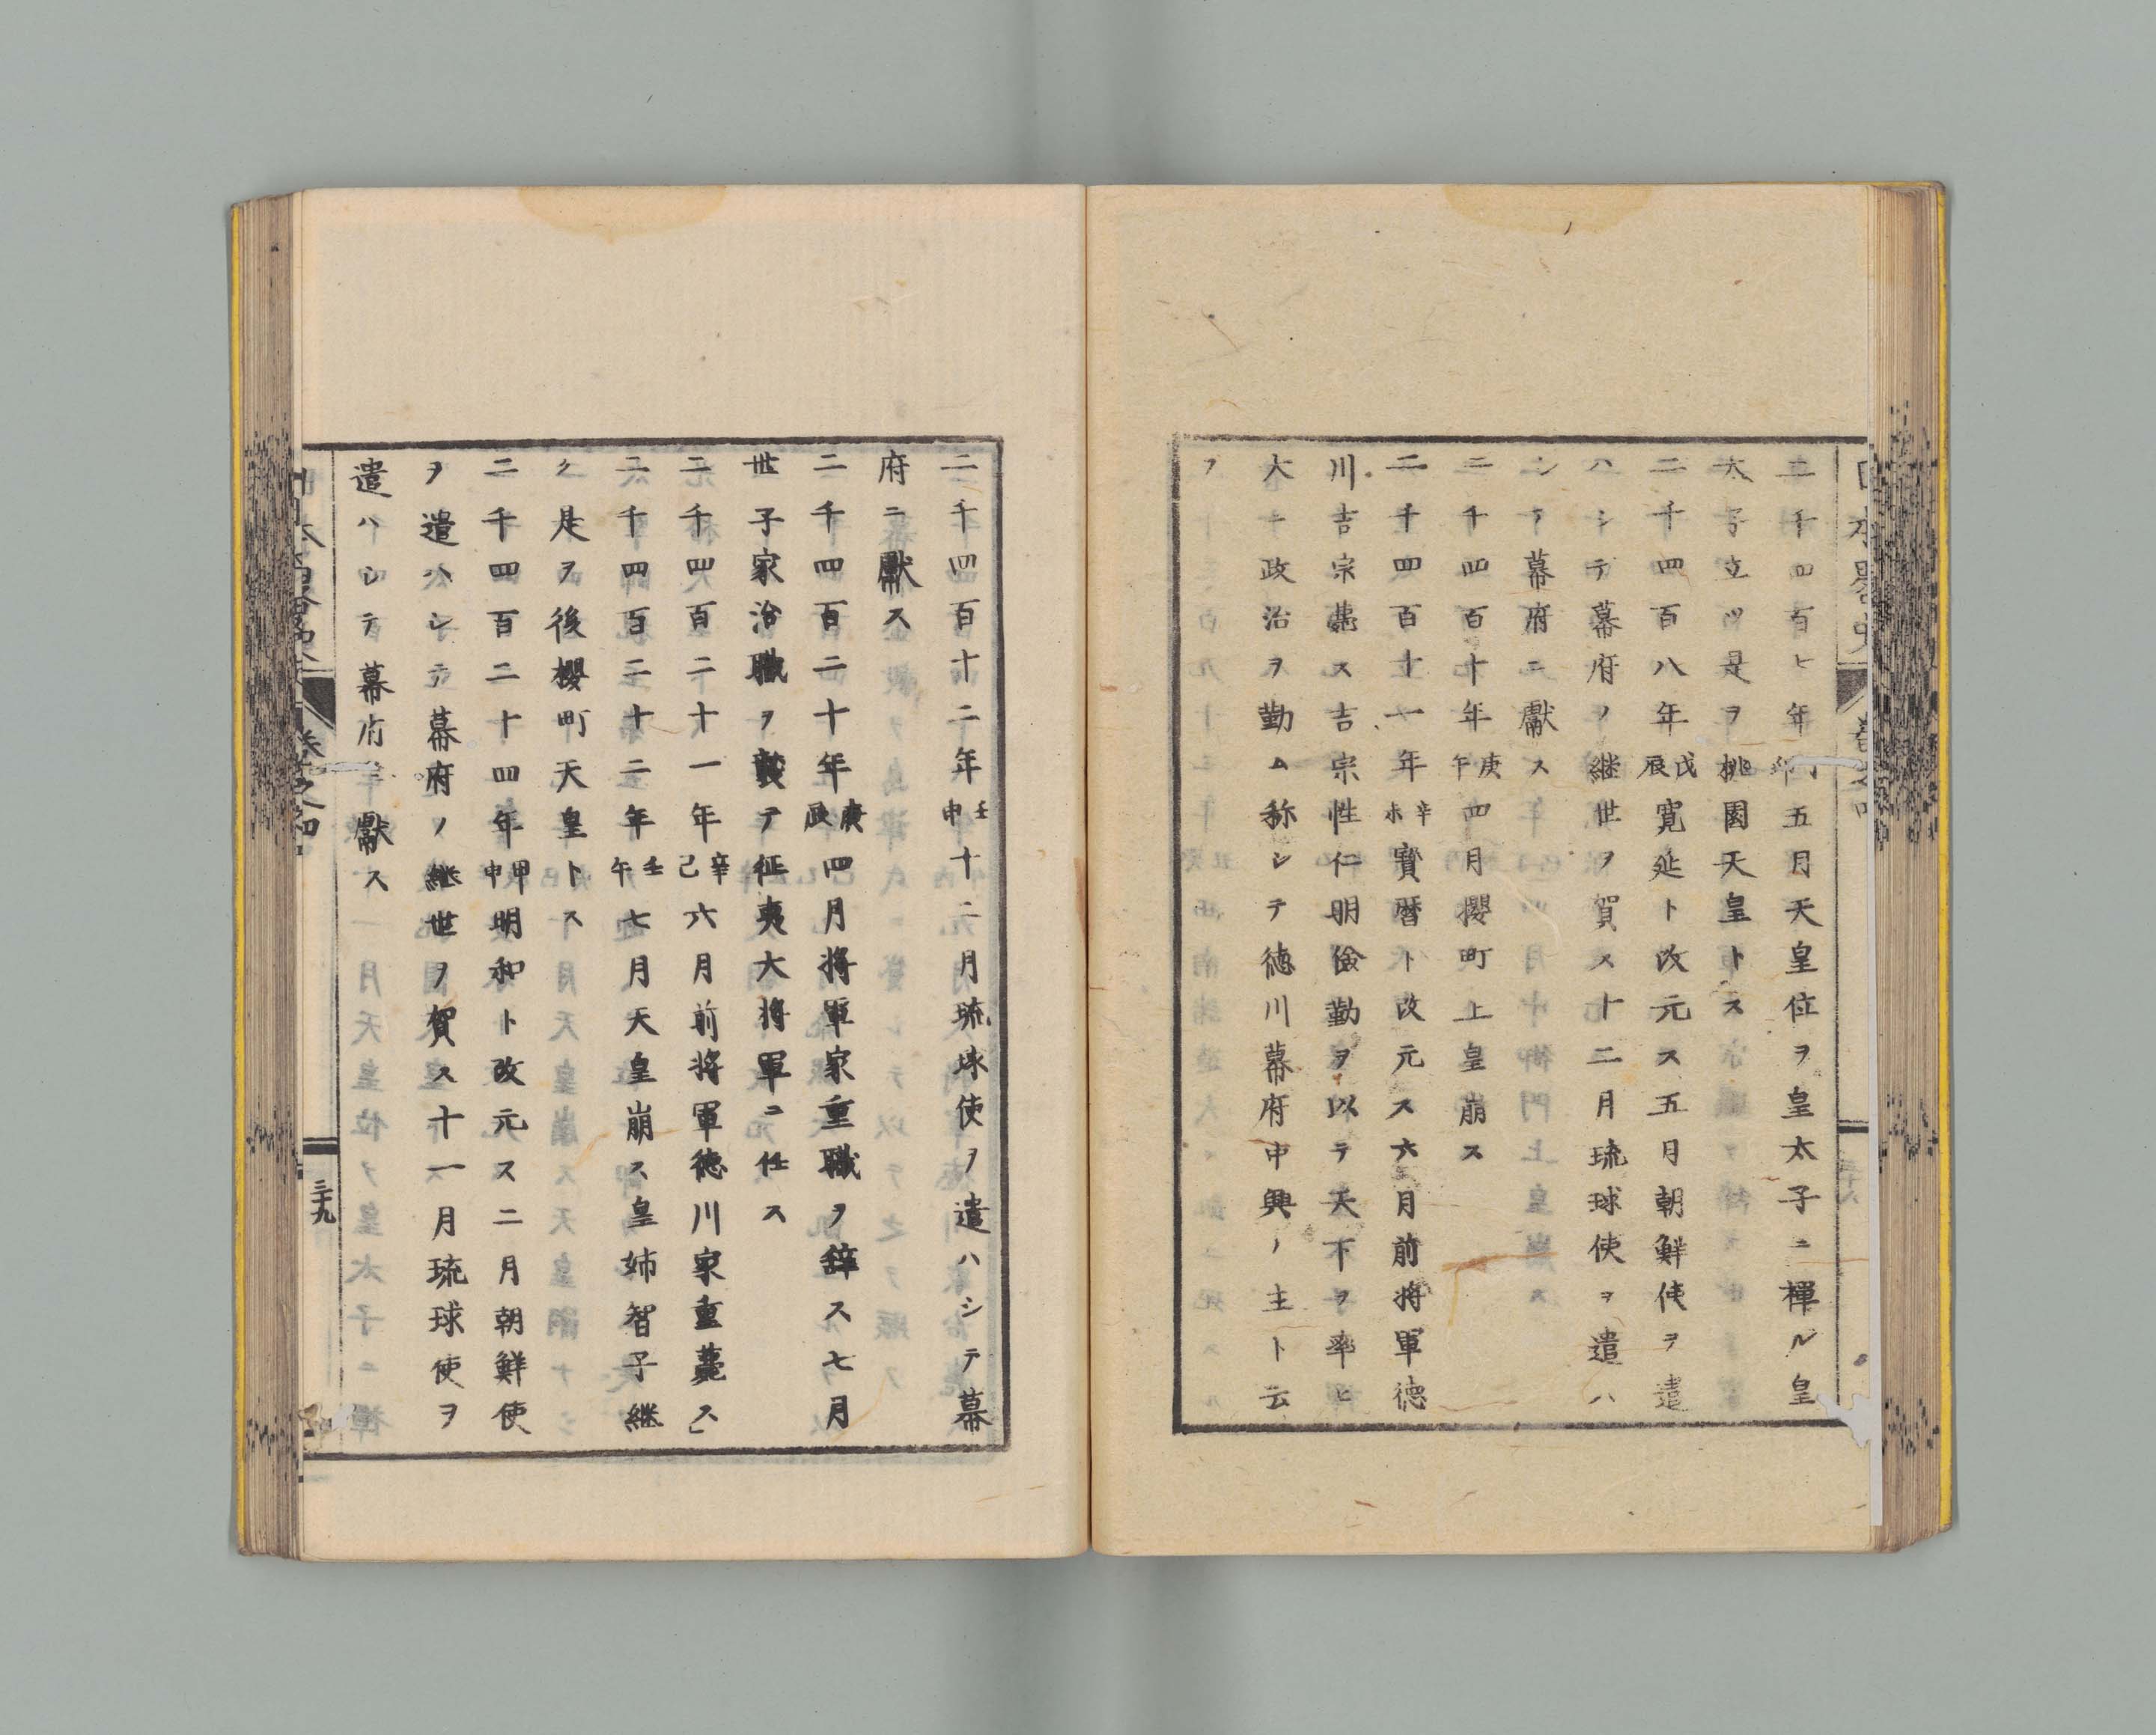 二千四百七年丁卯五月天皇位ヲ皇太子ニ禪ル皇
太子立ツ是ヲ桃園天皇トス
二千四百八年戊辰寛延ト改元ス五月朝鮮使ヲ遣
ハシテ幕府ノ継世ヲ賀ス十二月琉球使ヲ遣ハ
シテ幕府ニ獻ス
二千四百十年庚午四月櫻町上皇崩ス
二千四百十一年辛未寳暦ト改元ス六月前将軍徳
川吉宗薨ス吉宗性仁明儉勤ヲ以テ天下ヲ率ヒ
大ニ政治ヲ勤ム称シテ徳川幕府中興ノ主ト云
フ
二千四百十二年壬申十二月琉球使ヲ遣ハシテ幕
府ニ獻ス
二千四百二十年庚辰四月将軍家重職ヲ辞ス七月
世子家治職ヲ襲テ征夷大将軍ニ任ス
二千四百二十一年辛己六月前将軍徳川家重薨ス」
二千四百二十二年壬午七月天皇崩ス皇姉智子継
ク是ヲ後櫻町天皇トス
二千四百二十四年甲申明和ト改元ス二月朝鮮使
ヲ遣ハシテ幕府ノ継世ヲ賀ス十一月琉球使ヲ
遣ハシテ幕府ニ獻ス
三十九